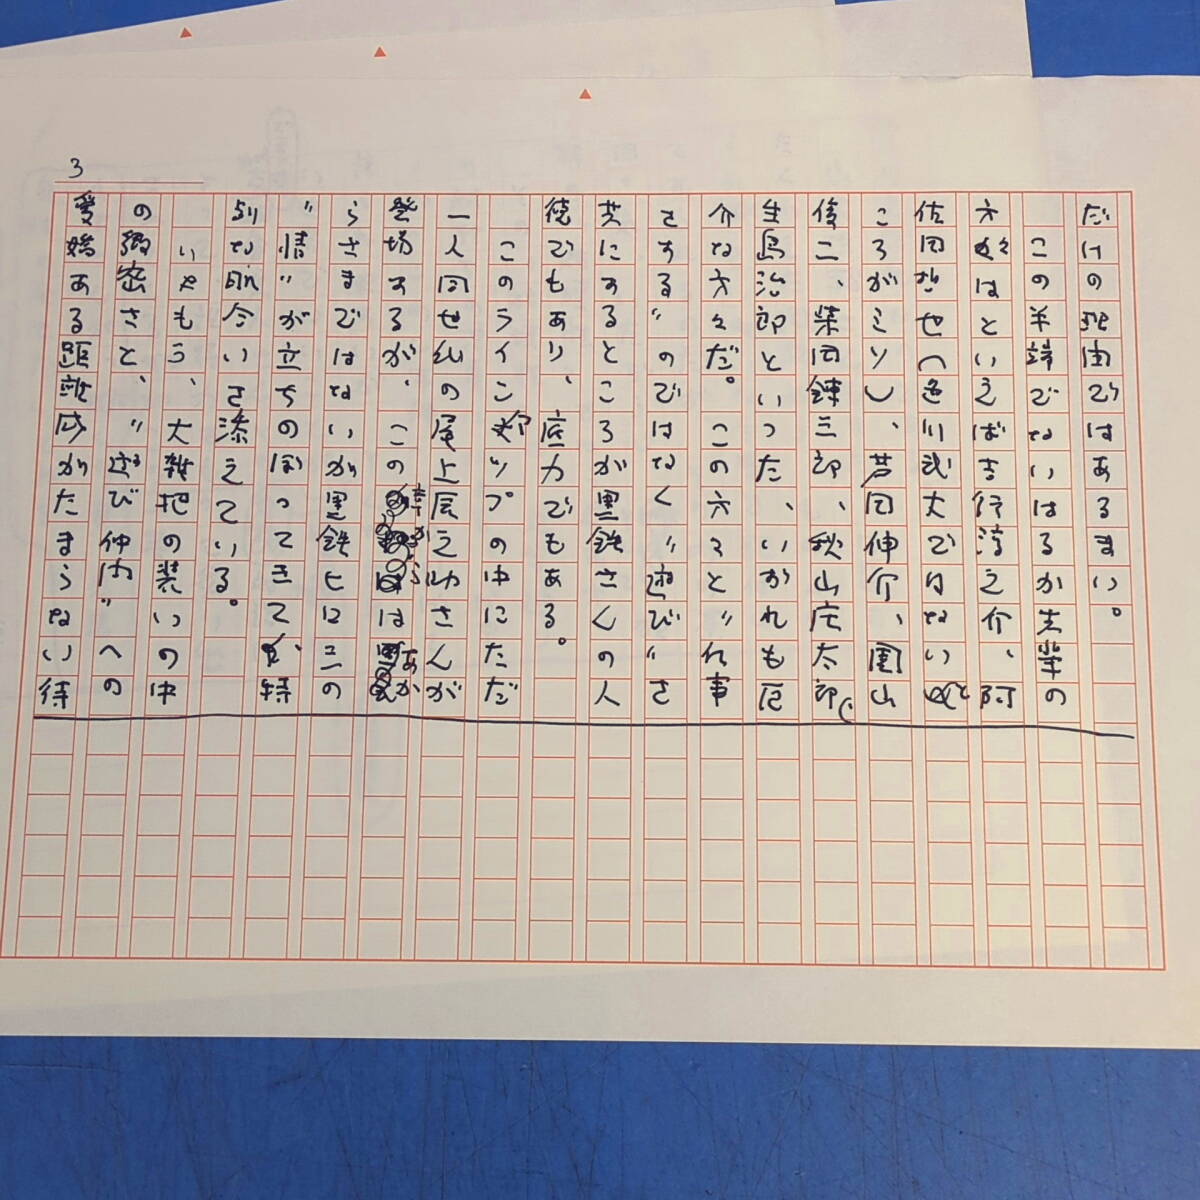 3
だけの理由ではあるまい。
この半端でないはるか先輩の
方々はといえば吉行淳之介、阿
佐田哲也(色川武大ではない
ころがミソ)、芦田伸介、園山
俊二、柴田錬三郎、秋山庄太郎、
生島治郎といった、いずれも厄
介な方々だ。この方々と〝仕事
をする〟のではなく〝遊び〟を
共にするところが黒鉄さんの人
徳でもあり、底力でもある。
このラインナップの中にただ
一人同世代の尾上辰之助さんが
登場するが、この章からはあか
らさまではないが黒鉄ヒロシの
〝情〟が立ちのぼってきて、特
別な風合いさ添えている。
いやもう、大雑把の装いの中
の緻密さと、〝遊び仲間〟への
愛嬌ある距離感がたまらない待